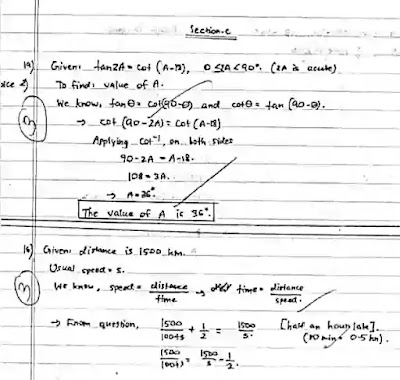 Section-C
19) Given: tan2A = cot (A-18), 0≤2A<90°. (2A is acute)
To find: value of A.
We know, tanθ = cot(90-θ) and cotθ = tan (90-θ).
3
→ cot (90-2A) = cot (A-18)
Applying cot⁻¹, on both sides
90-2A = A-18.
108 = 3A.
→ A=36°.
The value of A is 36°.
Given: distance is 1500 km.
Usual speed = s.
3
We know, speed = distance/time → time = distance/speed.
→ From question, 1500/100+s + 1/2 = 1500/s. [half an hour late].
1500/100+s = 1500/s - 1/2.